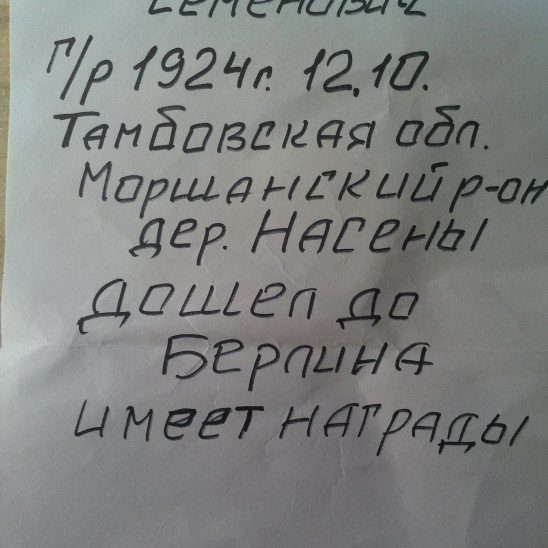 Семенович
Г/р 1924г. 12.10.
Тамбовская обл.
Моршанский р-он
дер. Насены
Дошел до
Берлина
имеет награды